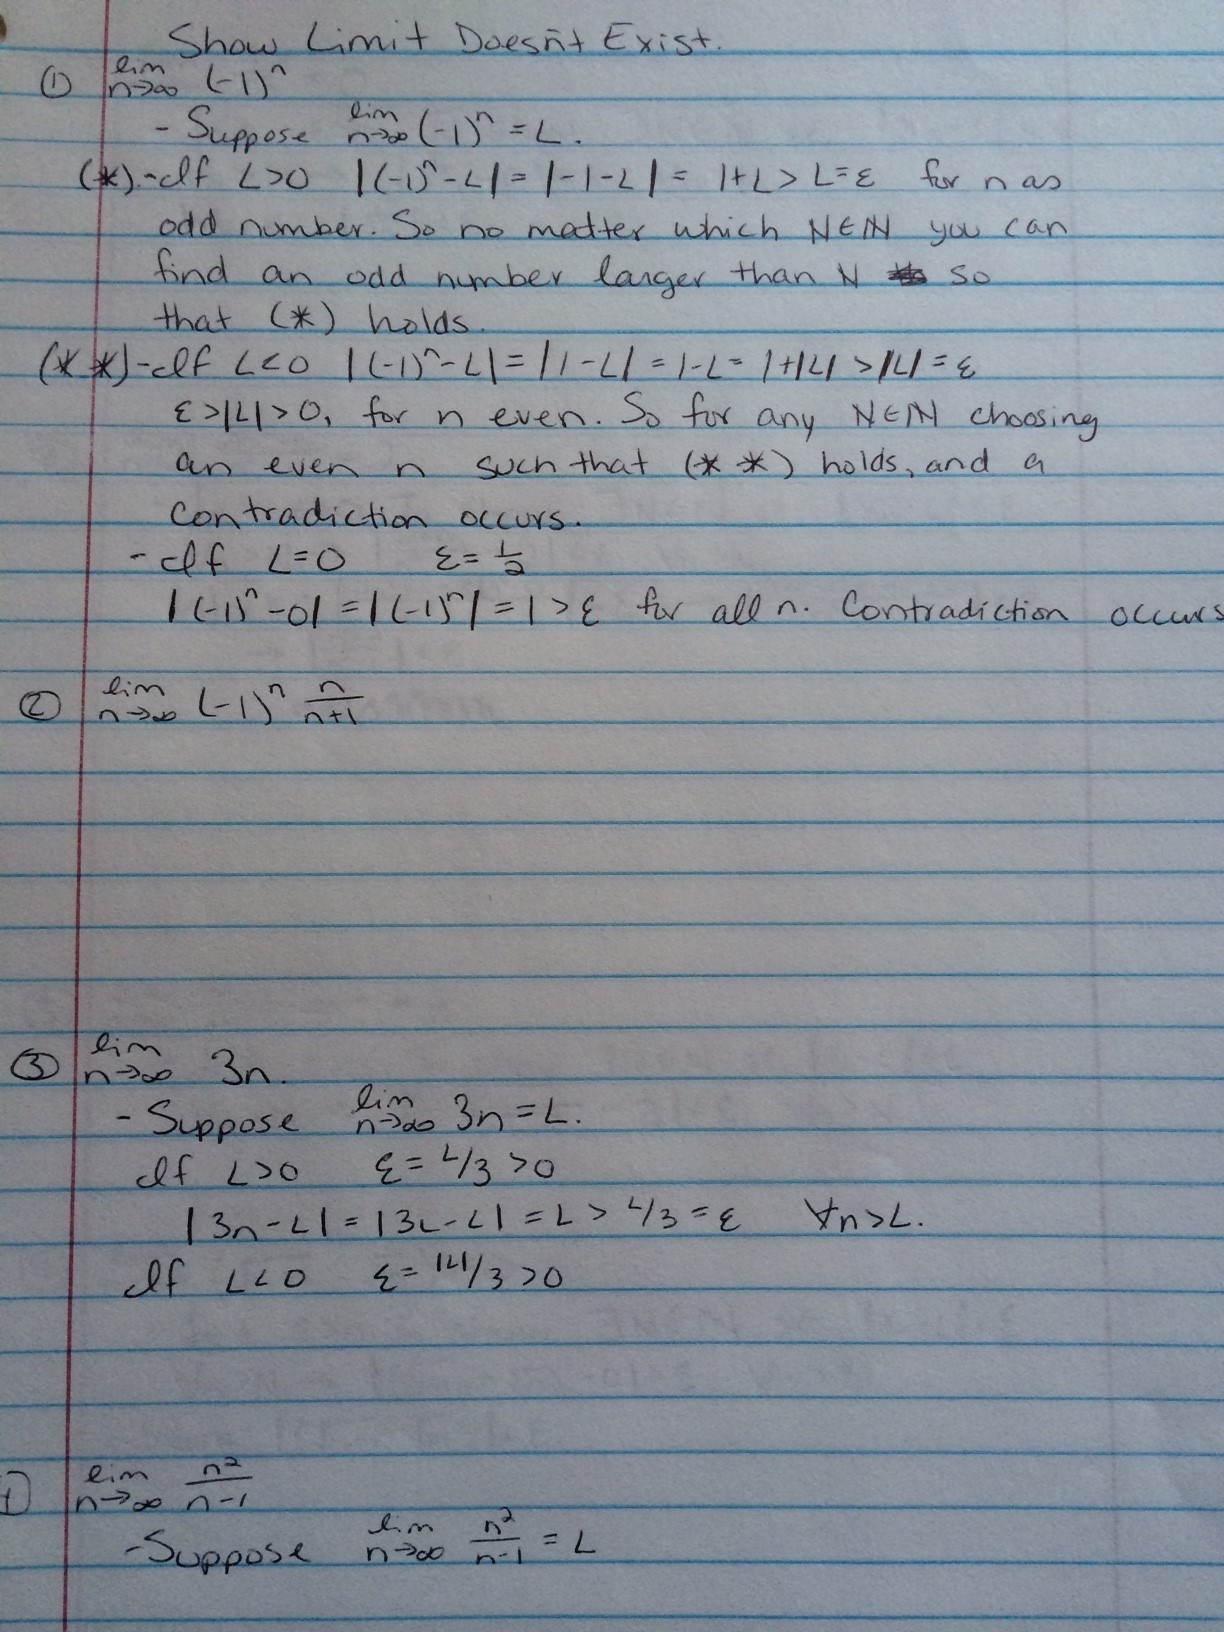 Show Limit Doesn't Exist.
① lim n→∞ (-1)ⁿ
- Suppose lim n→∞ (-1)ⁿ = L.
(*).- If L>0 |(-1)ⁿ-L| = |-1-L| = 1+L > L=ε for n as
odd number. So no matter which N∈ℕ you can
find an odd number larger than N so
that (*) holds.
(**)- If L<0 |(-1)ⁿ-L| = |1-L| = 1-L = 1+|L| > |L| = ε
ε>|L|>0, for n even. So for any N∈ℕ choosing
an even n such that (**) holds, and a
contradiction occurs.
- If L=0 ε= 1/2
|(-1)ⁿ-0| = |(-1)ⁿ| = 1 > ε for all n. Contradiction occurs
② lim n→∞ (-1)ⁿ n/(n+1)
③ lim n→∞ 3n.
- Suppose lim n→∞ 3n = L.
If L>0 ε= L/3 >0
|3n-L| = |3L-L| = L > L/3 = ε ∀n>L.
If L<0 ε= |L|/3 >0
lim n→∞ n²/(n-1)
- Suppose lim n→∞ n²/(n-1) = L